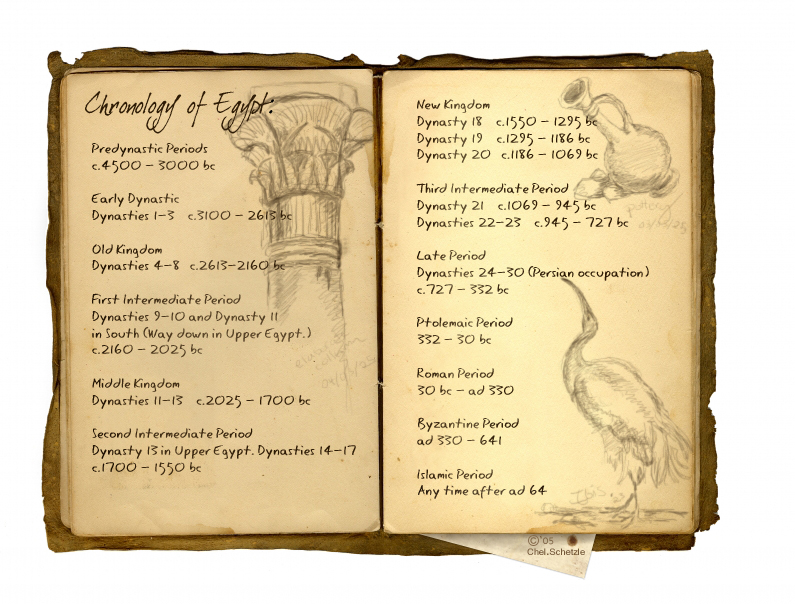 Chronology of Egypt:
Predynastic Periods
c.4500 – 3000 bc
Early Dynastic
Dynasties 1–3 c.3100 – 2613 bc
Old Kingdom
Dynasties 4–8 c.2613–2160 bc
First Intermediate Period
Dynasties 9–10 and Dynasty 11
in South (Way down in Upper Egypt.)
c.2160 – 2025 bc
Middle Kingdom
Dynasties 11–13 c.2025 – 1700 bc
Second Intermediate Period
Dynasty 13 in Upper Egypt. Dynasties 14–17
c.1700 – 1550 bc
column
New Kingdom
Dynasty 18 c.1550 – 1295 bc
Dynasty 19 c.1295 – 1186 bc
Dynasty 20 c.1186 – 1069 bc
Third Intermediate Period
Dynasty 21 c.1069 – 945 bc
Dynasties 22–23 c.945 – 727 bc
pottery
Late Period
Dynasties 24–30 (Persian occupation)
c.727 – 332 bc
Ptolemaic Period
332 – 30 bc
Roman Period
30 bc – ad 330
Byzantine Period
ad 330 – 641
Islamic Period
Any time after ad 64
Ibis
©'05
Chel.Schetzle